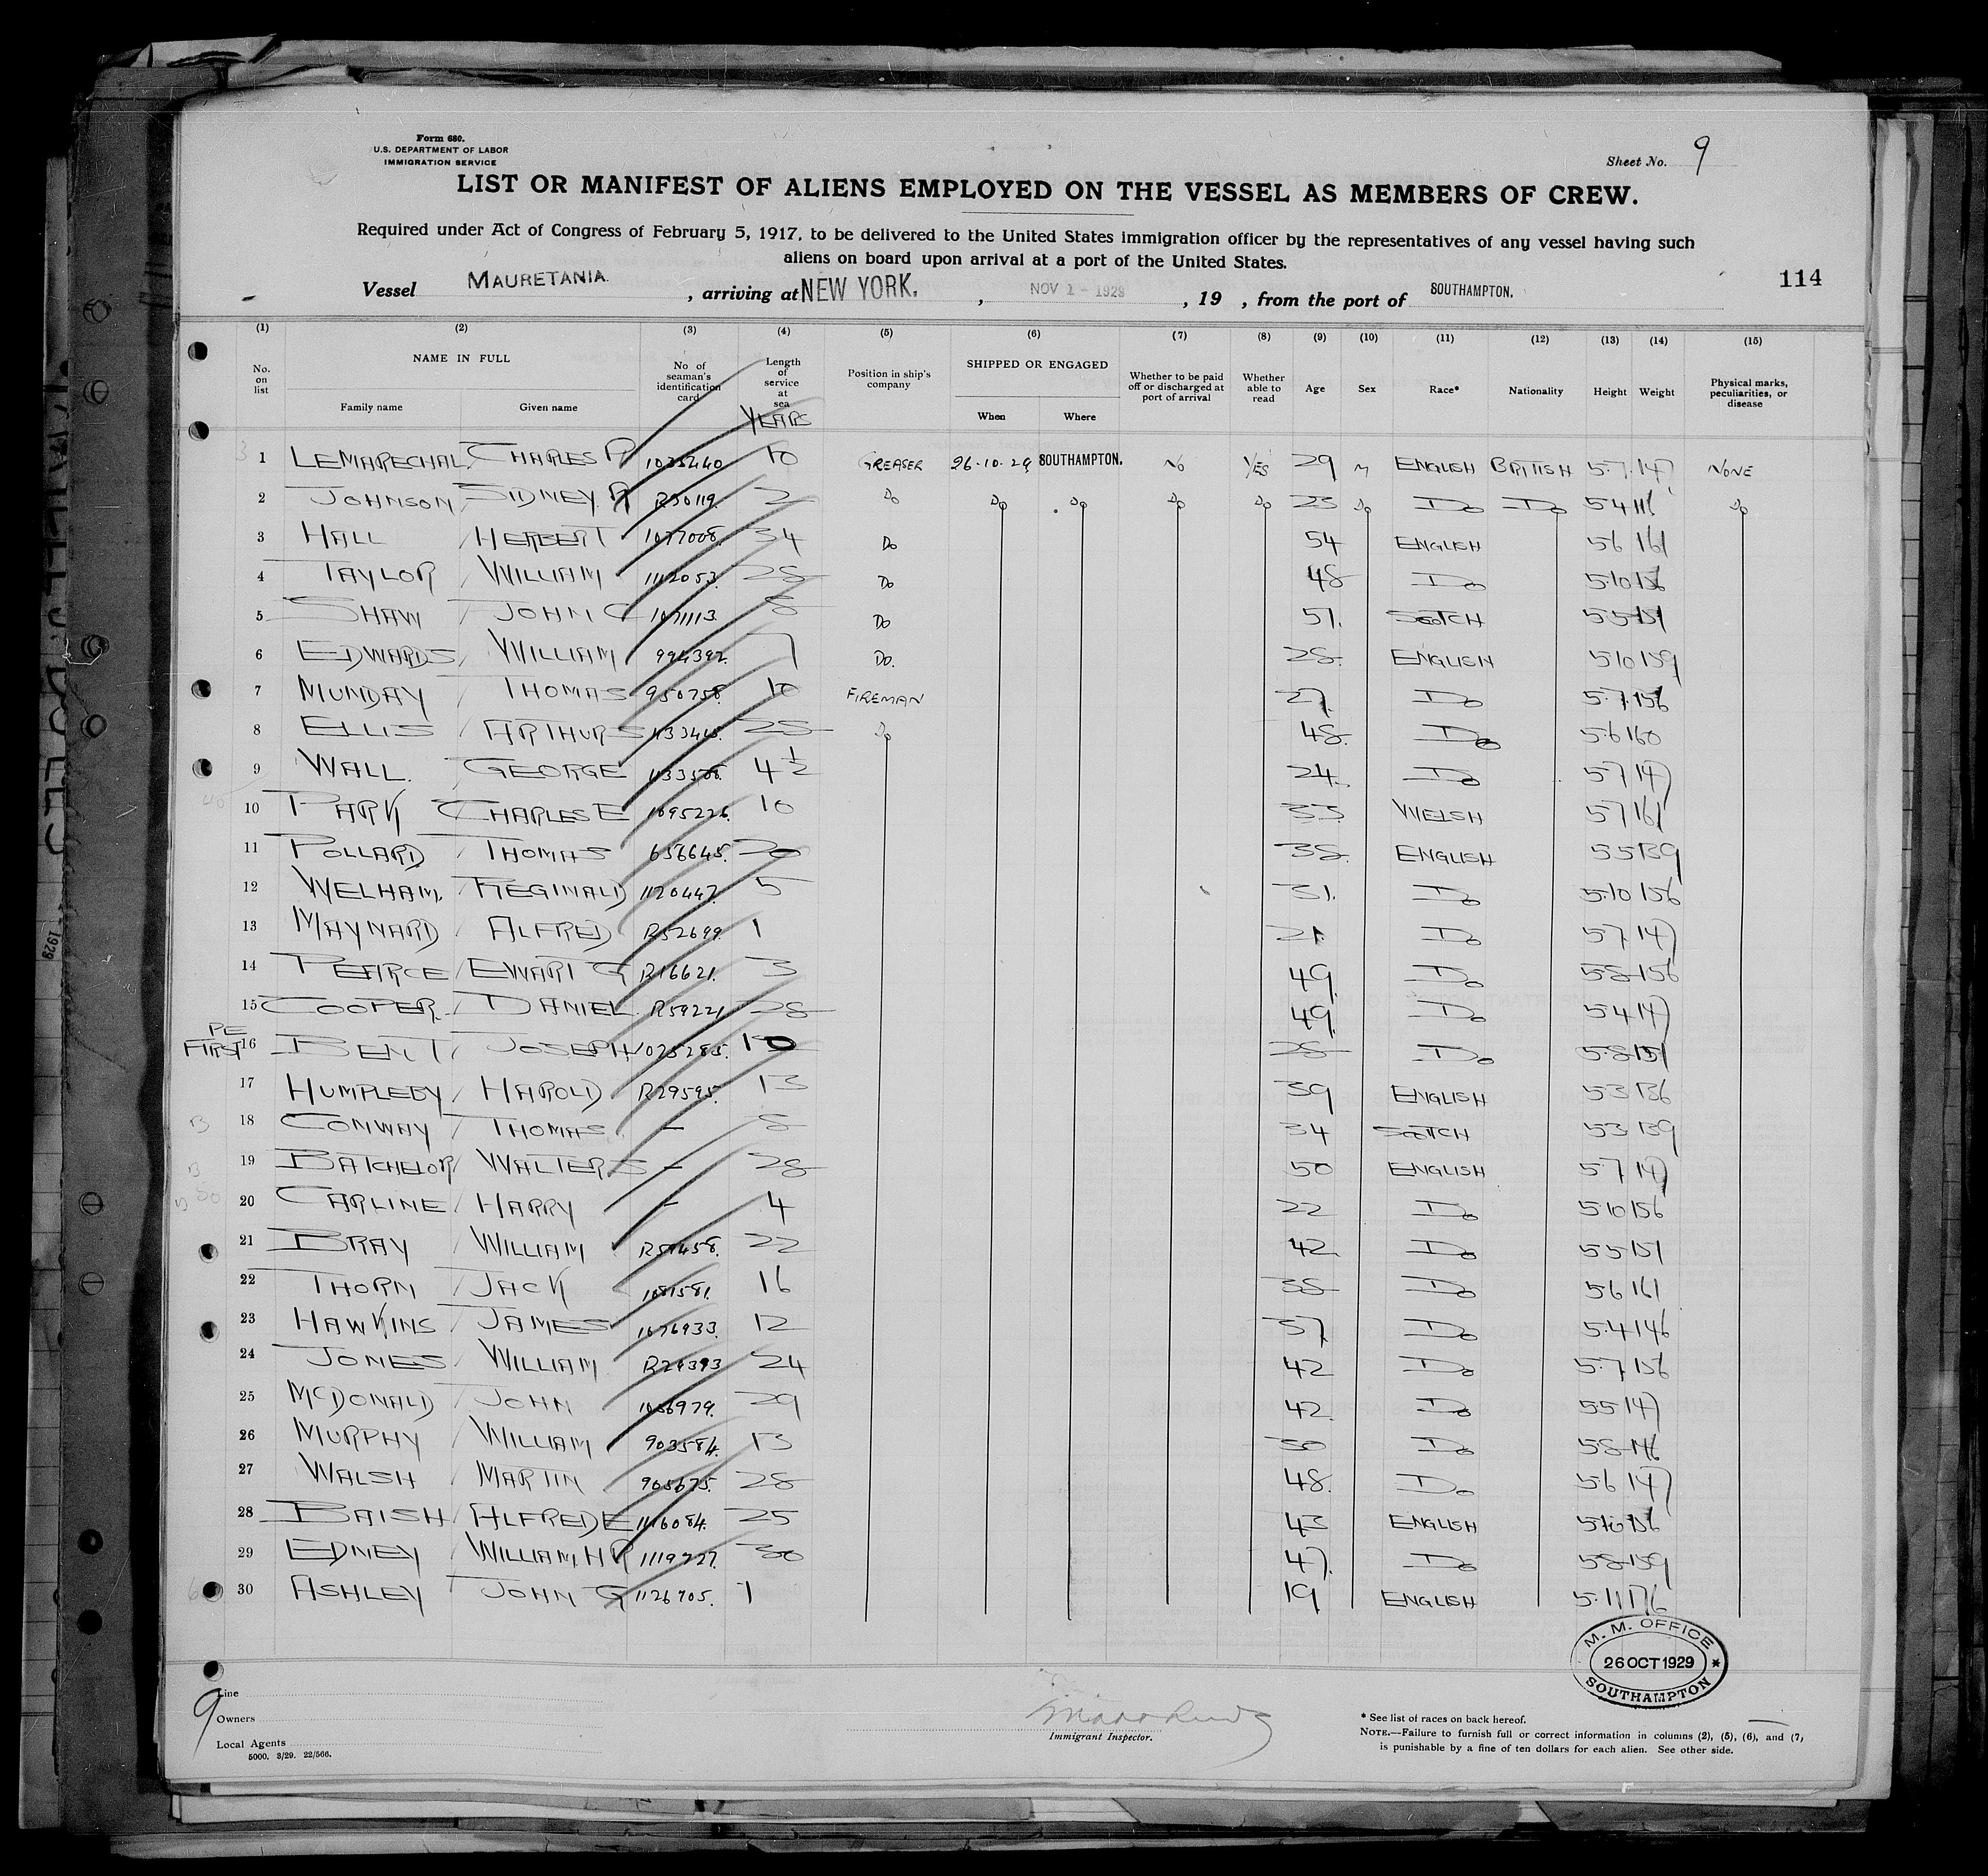 Form 680.
U.S. DEPARTMENT OF LABOR
IMMIGRATION SERVICE
Sheet No. 9
LIST OR MANIFEST OF ALIENS EMPLOYED ON THE VESSEL AS MEMBERS OF CREW.
Required under Act of Congress of February 5, 1917, to be delivered to the United States immigration officer by the representatives of any vessel having such
aliens on board upon arrival at a port of the United States.
114
Vessel MAURETANIA. , arriving at NEW YORK. , NOV 1 - 1929 , 19 , from the port of SOUTHAMPTON.
(1) (2) (3) (4) (5) (6) (7) (8) (9) (10) (11) (12) (13) (14) (15)
No. on list NAME IN FULL Family name Given name No of seaman's identification card Length of service at sea YEARS Position in ship's company SHIPPED OR ENGAGED When Where Whether to be paid off or discharged at port of arrival Whether able to read Age Sex Race* Nationality Height Weight Physical marks, peculiarities, or disease
1 LEMARECHAL CHARLES R 1035440 10 GREASER 26-10-29 SOUTHAMPTON. NO YES 29 M ENGLISH BRITISH 5.7 147 NONE
2 JOHNSON SIDNEY A R30119 2 DO DO DO DO DO 23 DO DO DO 5 4 116 DO
3 HALL HERBERT 1077008. 34 DO 54 ENGLISH 5 6 161
4 TAYLOR WILLIAM 1112053. 28 DO 48 DO 5.10 156
5 SHAW JOHN C 1071113. 8 DO 51. SCOTCH 5 5 151
6 EDWARDS WILLIAM 994392. 7 DO. 28. ENGLISH 5 10 159
7 MUNDAY THOMAS 950758. 10 FIREMAN 27. DO 5.7.156
8 ELLIS ARTHUR S 1133448. 28 DO 48. DO 5.6 160
9 WALL. GEORGE 1133508. 4½ 24. DO 5 7 147
10 PARK CHARLES E 1095226. 10 33 WELSH 5 7 161
11 POLLARD THOMAS 656645. 20 38. ENGLISH 5 5 139
12 WELHAM. REGINALD 1120447. 5 31. DO 5.10 156
13 MAYNARD ALFRED R52699. 1 21 DO 5 7 147
14 PEARCE EWART G R16621. 3 49. DO 5 8 156
15 COOPER DANIEL R59221 28 49. DO 5 4 147
PE
FIRST 16 BENT JOSEPH 1025285. 10 28 DO 5.8 151
17 HUMPLEBY HAROLD R29595. 13 39 ENGLISH 5 3 136
18 CONWAY THOMAS. — 8 34 SCOTCH 5 3 139
19 BATCHELOR WALTER S — 28 50 ENGLISH 5 7 147
20 CARLINE HARRY — 4 22 DO 5 10 156
21 BRAY WILLIAM R59458. 22 42 DO 5 5 151
22 THORN JACK 1081581. 16 38 DO 5 6 161
23 HAWKINS JAMES 1076933. 12 37 DO 5.4 146
24 JONES WILLIAM R29393 24 42 DO 5.7 156
25 MCDONALD JOHN 1036979. 29 42 DO 5 5 147
26 MURPHY WILLIAM 903584. 13 30 DO 5 8 146
27 WALSH MARTIN 905675. 28 48. DO 5 6 147
28 BAISH ALFRED E 1116084. 25 43 ENGLISH 5 10 156
29 EDNEY WILLIAM, H R 1119727. 30 47. DO 5 8 159
30 ASHLEY JOHN G 1126705. 1 19 ENGLISH 5.11 176
M. M. OFFICE
26 OCT 1929
SOUTHAMPTON
9
Line
Owners
Local Agents
5000. 3/29. 22/566.
Immigrant Inspector.
* See list of races on back hereof.
NOTE.—Failure to furnish full or correct information in columns (2), (5), (6), and (7)
is punishable by a fine of ten dollars for each alien. See other side.